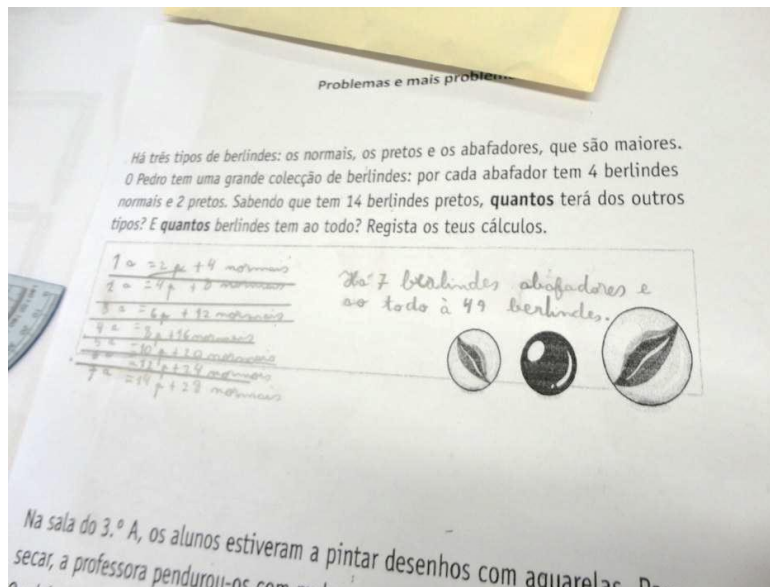 Problemas e mais
Há três tipos de berlindes: os normais, os pretos e os abafadores, que são maiores.
O Pedro tem uma grande colecção de berlindes: por cada abafador tem 4 berlindes
normais e 2 pretos. Sabendo que tem 14 berlindes pretos, quantos terá dos outros
tipos? E quantos berlindes tem ao todo? Regista os teus cálculos.
1 a = 2 p + 4 normais
2 a = 4 p + 8 normais
3 a = 6 p + 12 normais
4 a = 8 p + 16 normais
5 a = 10 p + 20 normais
6 a = 12 p + 24 normais
7 a = 14 p + 28 normais
Há 7 berlindes abafadores e
ao todo à 49 berlindes.
Na sala do 3.º A, os alunos estiveram a pintar desenhos com aguarelas.
secar, a professora pendurou-os com